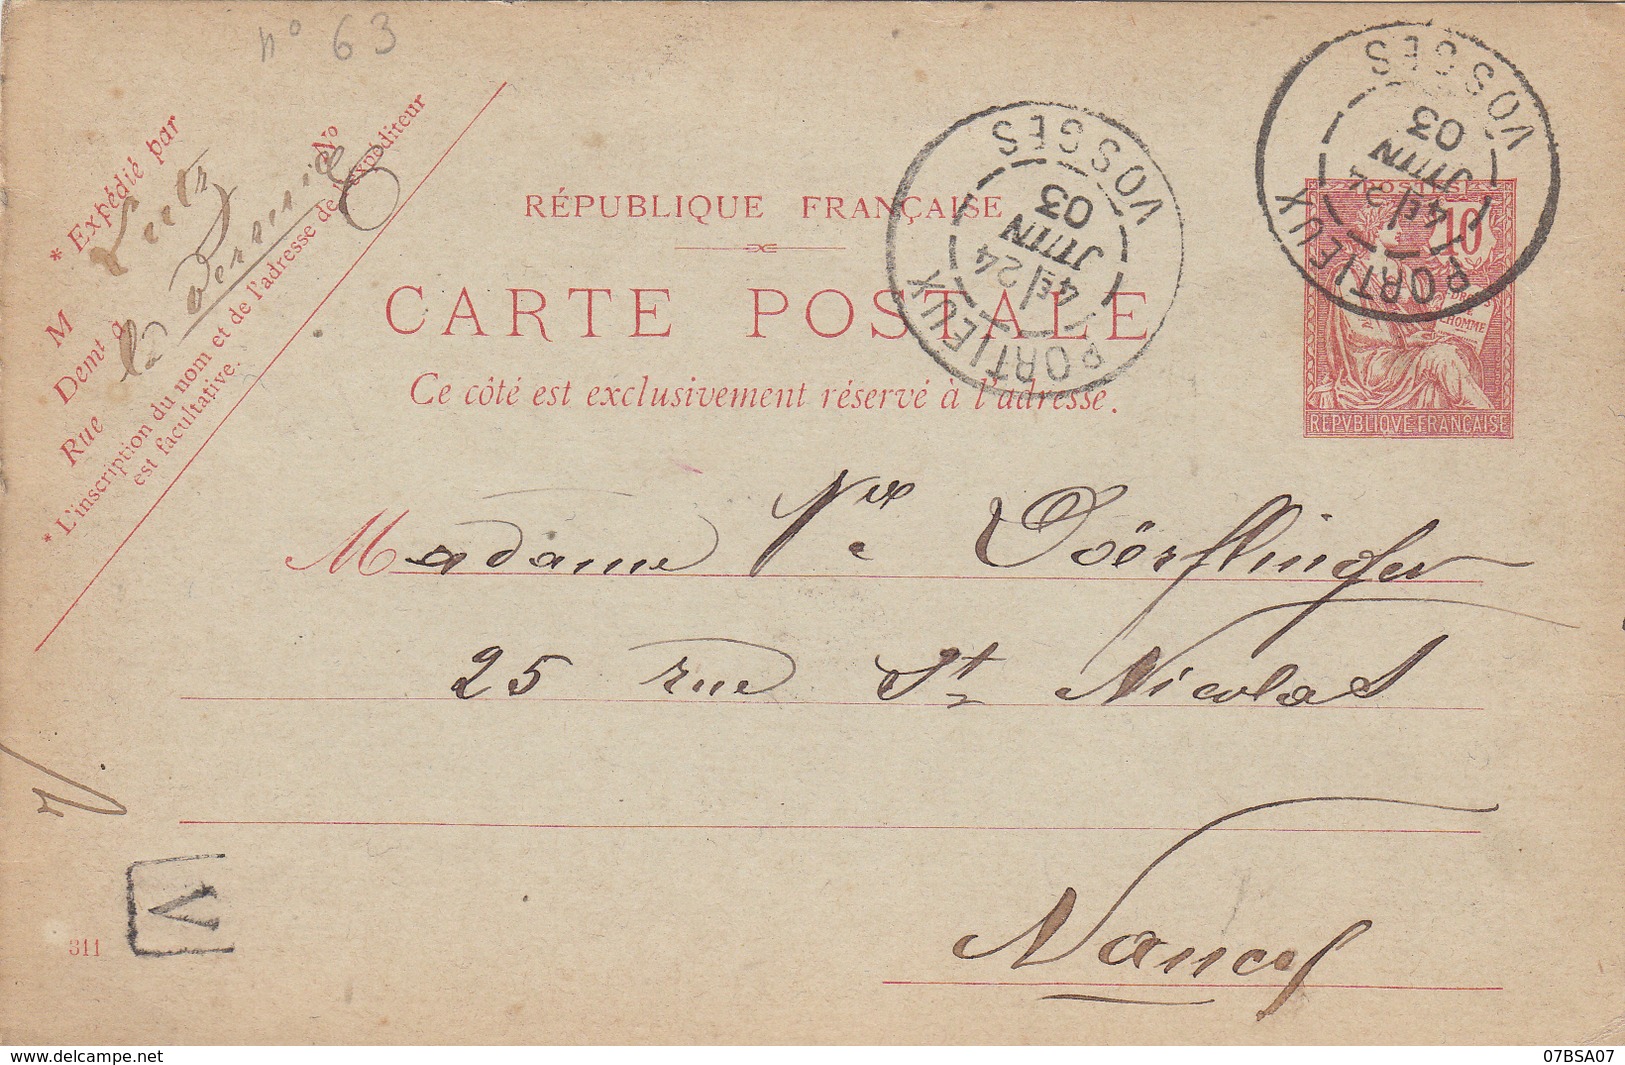 n° 63
* Expédié par
M
Demt à la Verrerie
Rue N°
* L'inscription du nom et de l'adresse de l'expéditeur
est facultative.
RÉPUBLIQUE FRANÇAISE
CARTE POSTALE
Ce côté est exclusivement réservé à l'adresse.
PORTIEUX
4E/24
JUIN
03
VOSGES
PORTIEUX
4E/24
JUIN
03
VOSGES
POSTES
10
DROITS
DE
L'HOMME
REPVBLIQVE FRANÇAISE
Madame Vve Doërflinger
25 rue St Nicolas
Nancy
V
311
delcampe.net
07BSA07